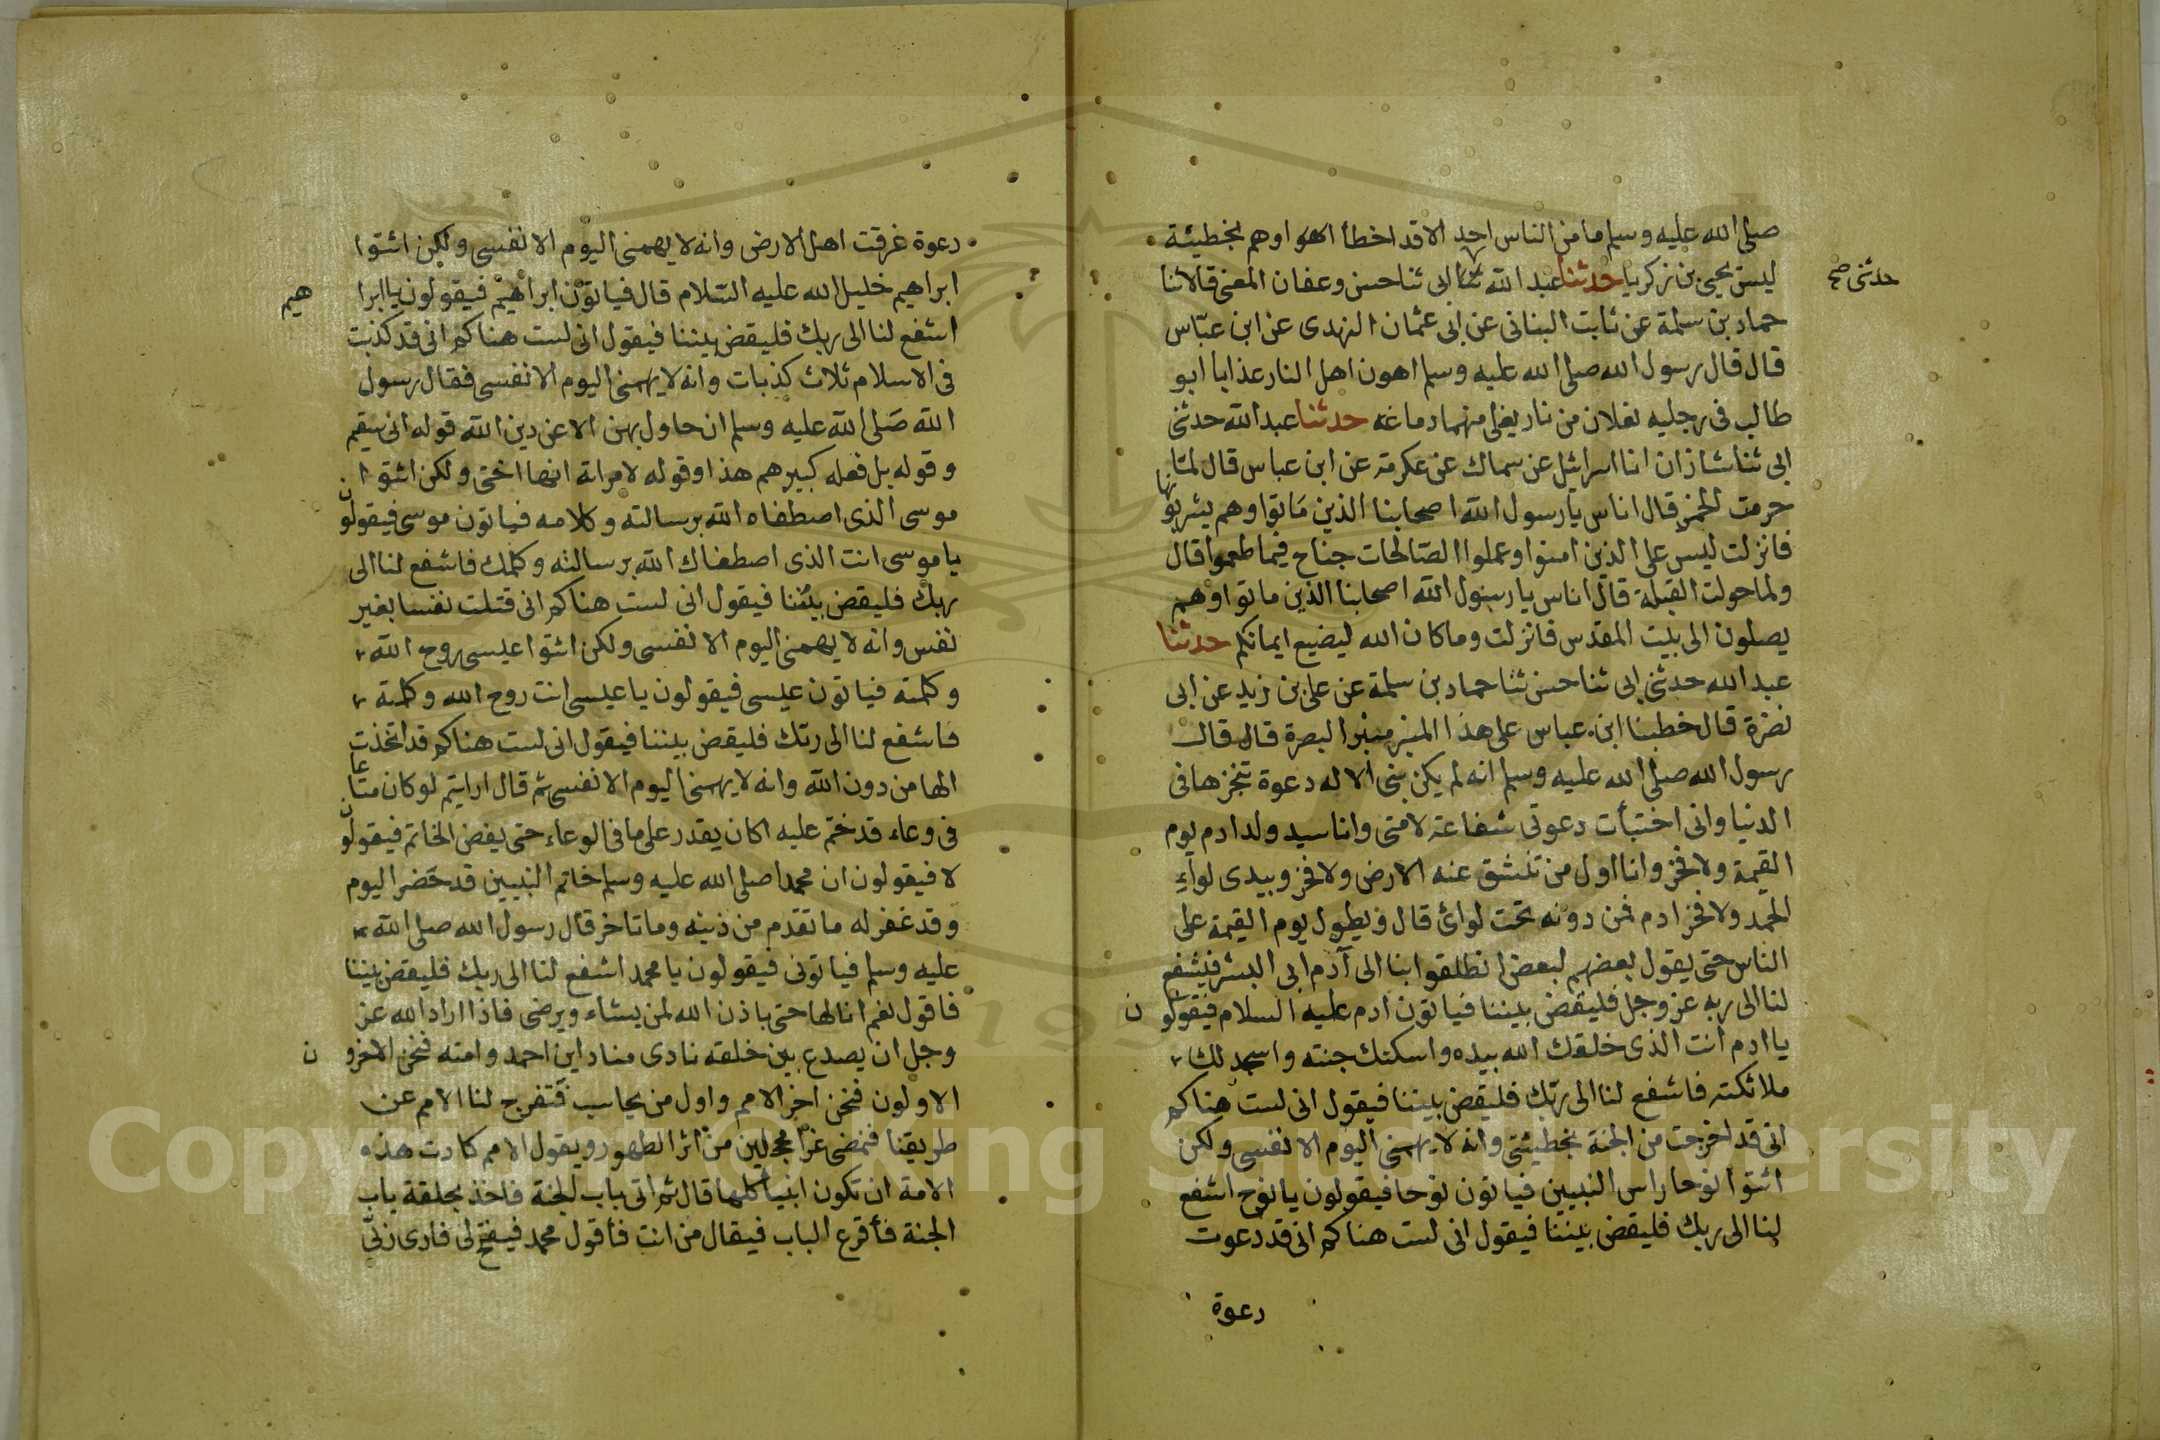 صلى الله عليه وسلم ما من الناس احد الا قد اخطأ او هم بخطيئة
ليس يحيى بن زكريا حدثنا عبد الله ثنا ابى ثنا حسن وعفان المعنى قالا ثنا
حدثنى صح
حماد بن سلمة عن ثابت البنانى عن ابى عثمان النهدى عن ابن عباس
قال قال رسول الله صلى الله عليه وسلم اهون اهل النار عذابا ابو
طالب فى رجليه نعلان من نار يغلى منهما دماغه حدثنا عبد الله حدثنى
ابى ثنا شاذان انا اسرائيل عن سماك عن عكرمة عن ابن عباس قال لما
حرمت الخمر قال اناس يا رسول الله اصحابنا الذين ماتوا وهم يشربونها
فانزلت ليس على الذين امنوا وعملوا الصالحات جناح فيما طعموا قال
ولما حولت القبلة قال اناس يا رسول الله اصحابنا الذين ماتوا وهم
يصلون الى بيت المقدس فانزلت وما كان الله ليضيع ايمانكم حدثنا
عبد الله حدثنى ابى ثنا حسن ثنا حماد بن سلمة عن على بن زيد عن ابى
نضرة قال خطبنا ابن عباس على هذا المنبر منبر البصرة قال قال
رسول الله صلى الله عليه وسلم انه لم يكن نبى الا له دعوة تنجزها فى
الدنيا وانى اختبأت دعوتى شفاعة لامتى وانا سيد ولد ادم يوم
القيمة ولا فخر وانا اول من تنشق عنه الارض ولا فخر وبيدى لواء
الحمد ولا فخر ادم فمن دونه تحت لوائ قال ويطول يوم القيمة على
الناس حتى يقول بعضهم لبعض انطلقوا بنا الى آدم ابى البشر فيشفع
لنا الى ربه عز وجل فليقض بيننا فياتون ادم عليه السلام فيقولون
يا ادم انت الذى خلقك الله بيده واسكنك جنته واسجد لك
ملائكته فاشفع لنا الى ربك فليقض بيننا فيقول انى لست هناكم
انى قد اخرجت من الجنة بخطيئتى وانه لا يهمنى اليوم الا نفسى ولكن
ائتوا نوحا راس النبيين فياتون نوحا فيقولون يا نوح اشفع
لنا الى ربك فليقض بيننا فيقول انى لست هناكم انى قد دعوت
دعوة
دعوة غرقت اهل الارض وانه لا يهمنى اليوم الا نفسى ولكن ائتوا
ابراهيم خليل الله عليه السلام قال فياتون ابراهيم فيقولون يا ابرا
هيم
اشفع لنا الى ربك فليقض بيننا فيقول انى لست هناكم انى قد كذبت
فى الاسلام ثلاث كذبات وانه لا يهمنى اليوم الا نفسى فقال رسول
الله صلى الله عليه وسلم ان حاول بهن الا عن دين الله قوله انى سقيم
وقوله بل فعله كبيرهم هذا وقوله لامراته انها اختى ولكن ائتوا
موسى الذى اصطفاه الله برسالته وكلامه فياتون موسى فيقولون
يا موسى انت الذى اصطفاك الله برسالته وكلمك فاشفع لنا الى
ربك فليقض بيننا فيقول انى لست هناكم انى قتلت نفسا بغير
نفس وانه لا يهمنى اليوم الا نفسى ولكن ائتوا عيسى روح الله
وكلمته فياتون عيسى فيقولون يا عيسى انت روح الله وكلمته
فاشفع لنا الى ربك فليقض بيننا فيقول انى لست هناكم قد اتخذت
الها من دون الله وانه لا يهمنى اليوم الا نفسى ثم قال ارايتم لو كان متاعا
فى وعاء قد ختم عليه اكان يقدر على ما فى الوعاء حتى يفض الخاتم فيقولون
لا فيقولون ان محمدا صلى الله عليه وسلم خاتم النبيين قد حضر اليوم
وقد غفر له ما تقدم من ذنبه وما تاخر قال رسول الله صلى الله
عليه وسلم فياتونى فيقولون يا محمد اشفع لنا الى ربك فليقض بيننا
فاقول نعم انا لها حتى ياذن الله لمن يشاء ويرضى فاذا اراد الله عز
وجل ان يصدع بين خلقه نادى مناد اين احمد وامته فنحن الاخرو
ن
الاولون فنحن اخر الامم واول من يحاسب فتفرج لنا الامم عن
طريقنا فنمضى غرا محجلين من اثر الطهور ويقول الامم كادت هذه
الامة ان تكون انبيا كلها قال ثم اتى باب الجنة فاخذ بحلقة باب
الجنة فأقرع الباب فيقال من انت فأقول محمد فيفتح لى فارى ربى
Copyright © King Saud University